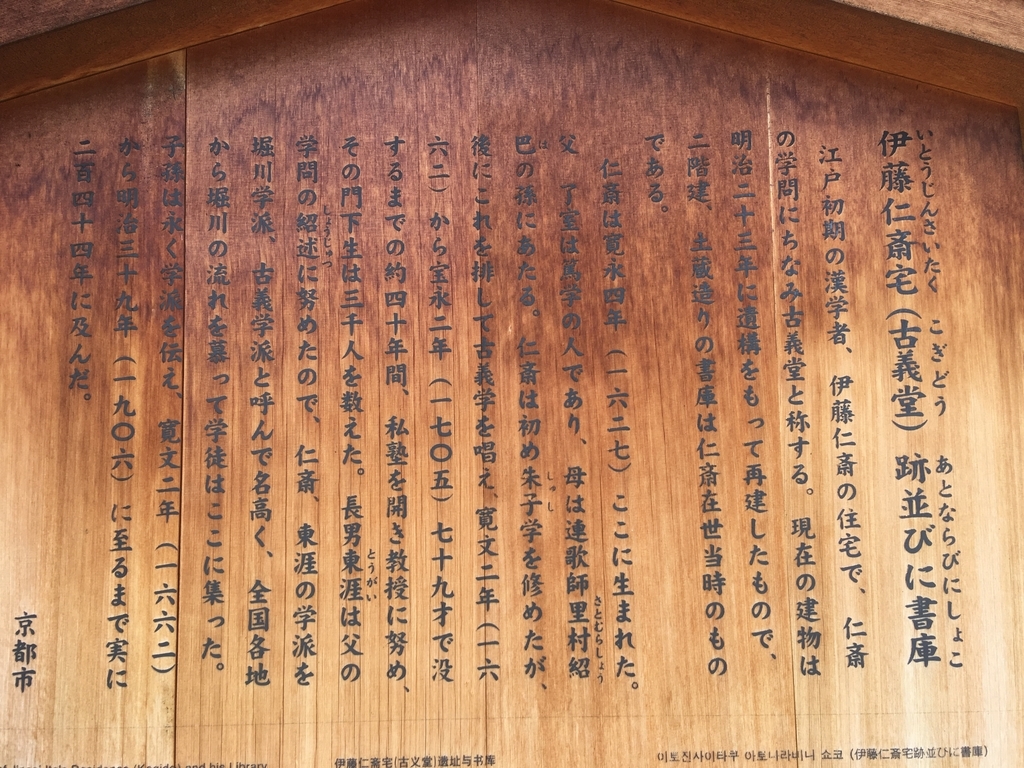 いとうじんさいたく こぎどう あとならびにしょこ
伊藤仁斎宅（古義堂）跡並びに書庫
江戸初期の漢学者、伊藤仁斎の住宅で、仁斎
の学問にちなみ古義堂と称する。現在の建物は
明治二十三年に遺構をもって再建したもので、
二階建、土蔵造りの書庫は仁斎在世当時のもの
である。
仁斎は寛永四年（一六二七）ここに生まれた。
父 了室は篤学の人であり、母は連歌師里村紹
さとむらしょう
巴の孫にあたる。仁斎は初め朱子学を修めたが、
は しゅし
後にこれを排して古義学を唱え、寛文二年（一六
六二）から宝永二年（一七〇五）七十九才で没
するまでの約四十年間、私塾を開き教授に努め、
その門下生は三千人を数えた。長男東涯は父の
とうがい
学問の紹述に努めたので、仁斎、東涯の学派を
しょうじゅつ
堀川学派、古義学派と呼んで名高く、全国各地
から堀川の流れを慕って学徒はここに集った。
子孫は永く学派を伝え、寛文二年（一六六二）
から明治三十九年（一九〇六）に至るまで実に
二百四十四年に及んだ。
京都市
이토진사이타쿠 아토나라비니 쇼코（伊藤仁斎宅跡並びに書庫）
伊藤仁斋宅(古义堂)遗址与书库
and his Library